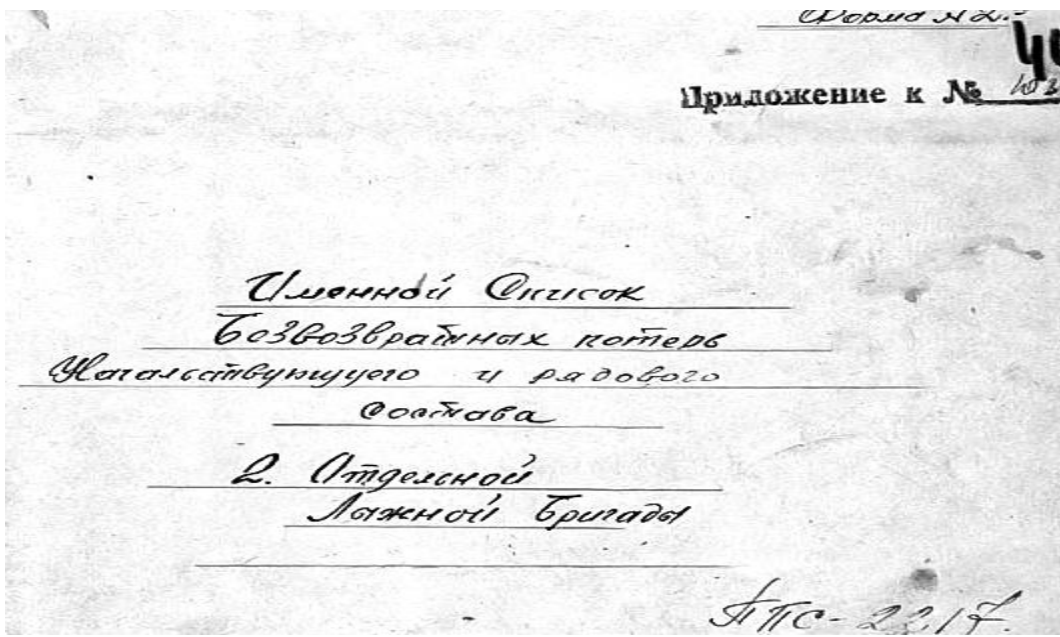 Форма №2.
Приложение к №
Именной Список
Безвозвратных потерь
Начальствующего и рядового
состава
2. Отдельной
Лыжной Бригады
ППС-2217.